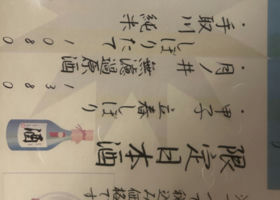 限定日本酒
・甲子 立春しぼり
・月ノ井 無濾過原酒
1380
・手取川 純米
しぼりたて
1080
酒
税込み価格です